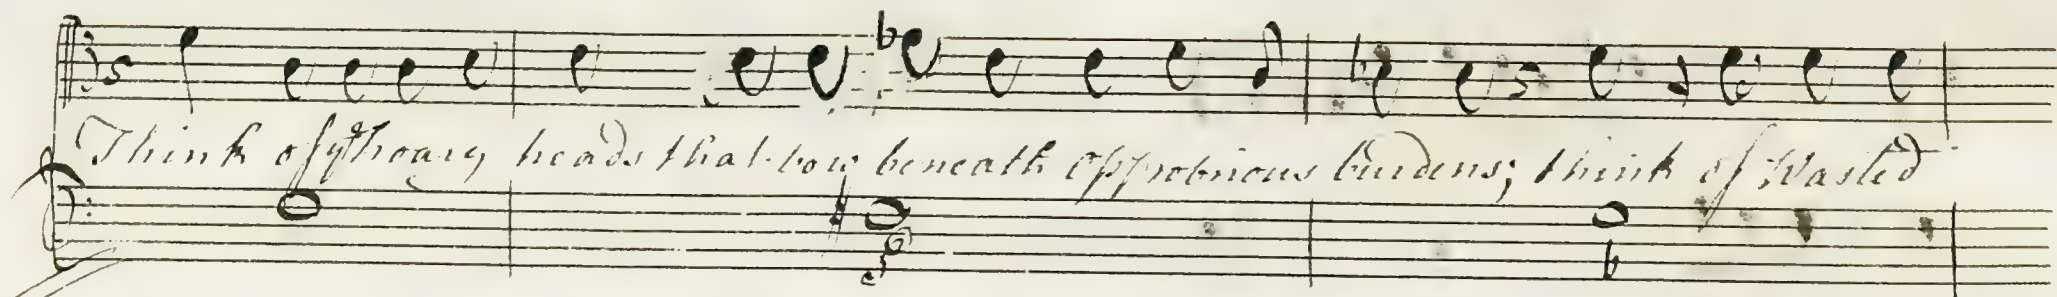 Think of yͤ hoary heads that bow beneath opprobrious burdens; think of Wasted